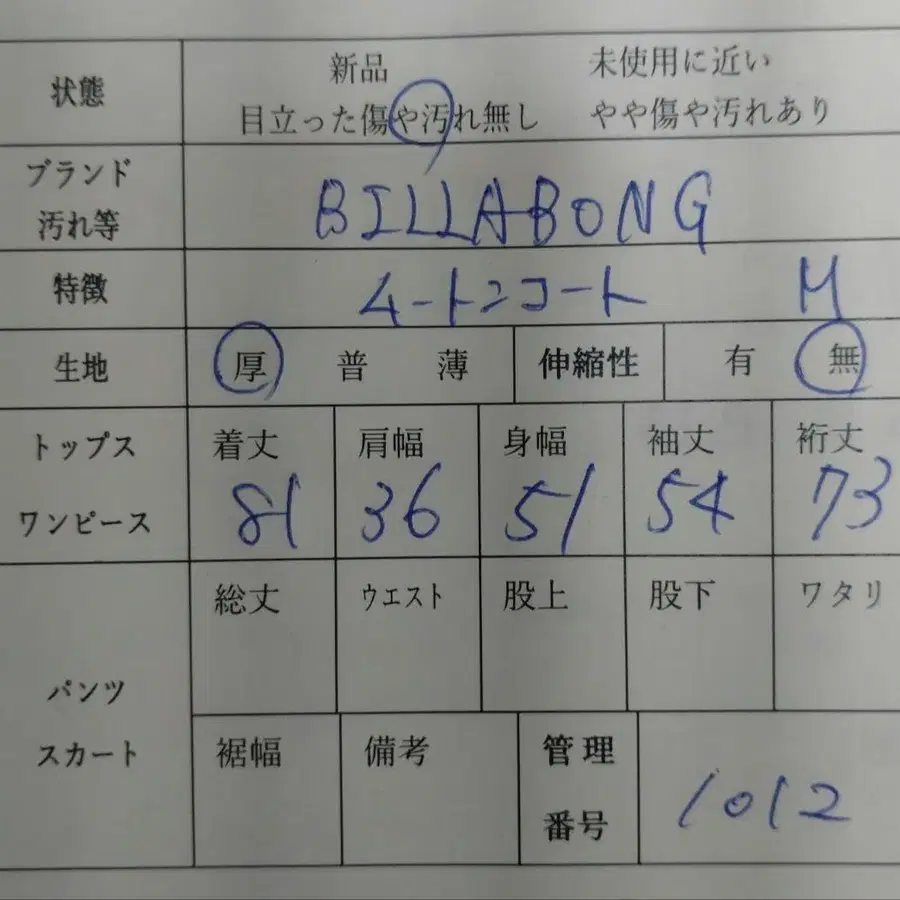 状態
新品 未使用に近い
目立った傷や汚れ無し やや傷や汚れあり
ブランド
汚れ等
BILLABONG
特徴
ムートンコート M
生地 厚 普 薄 伸縮性 有 無
トップス
ワンピース
着丈 肩幅 身幅 袖丈 裄丈
81 36 51 54 73
パンツ
スカート
総丈 ウエスト 股上 股下 ワタリ
裾幅 備考 管理
番号
1012